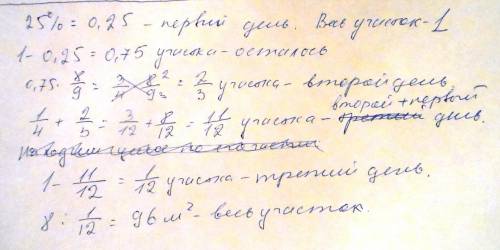 25% = 0,25 - первий день. Весь участок - 1
1 - 0,25 = 0,75 участка - осталось
0,75 · 8/9 = 3/4 · 8/9 = 2/3 участка - второй день
1/4 + 2/3 = 3/12 + 8/12 = 11/12 участка - второй + первый день.
1 - 11/12 = 1/12 участка - третий день.
8 : 1/12 = 96 м² - весь участок.